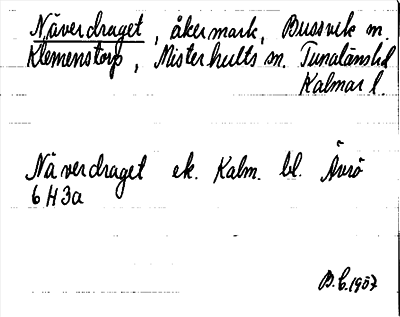 Näverdraget, åkermark, Bussvik m.
Klemenstorp, Misterhults sn. Tunaläns hd
Kalmar l.
Näverdraget ek. Kalm. bl. Ävrö
6 H 3a
B.C. 1957